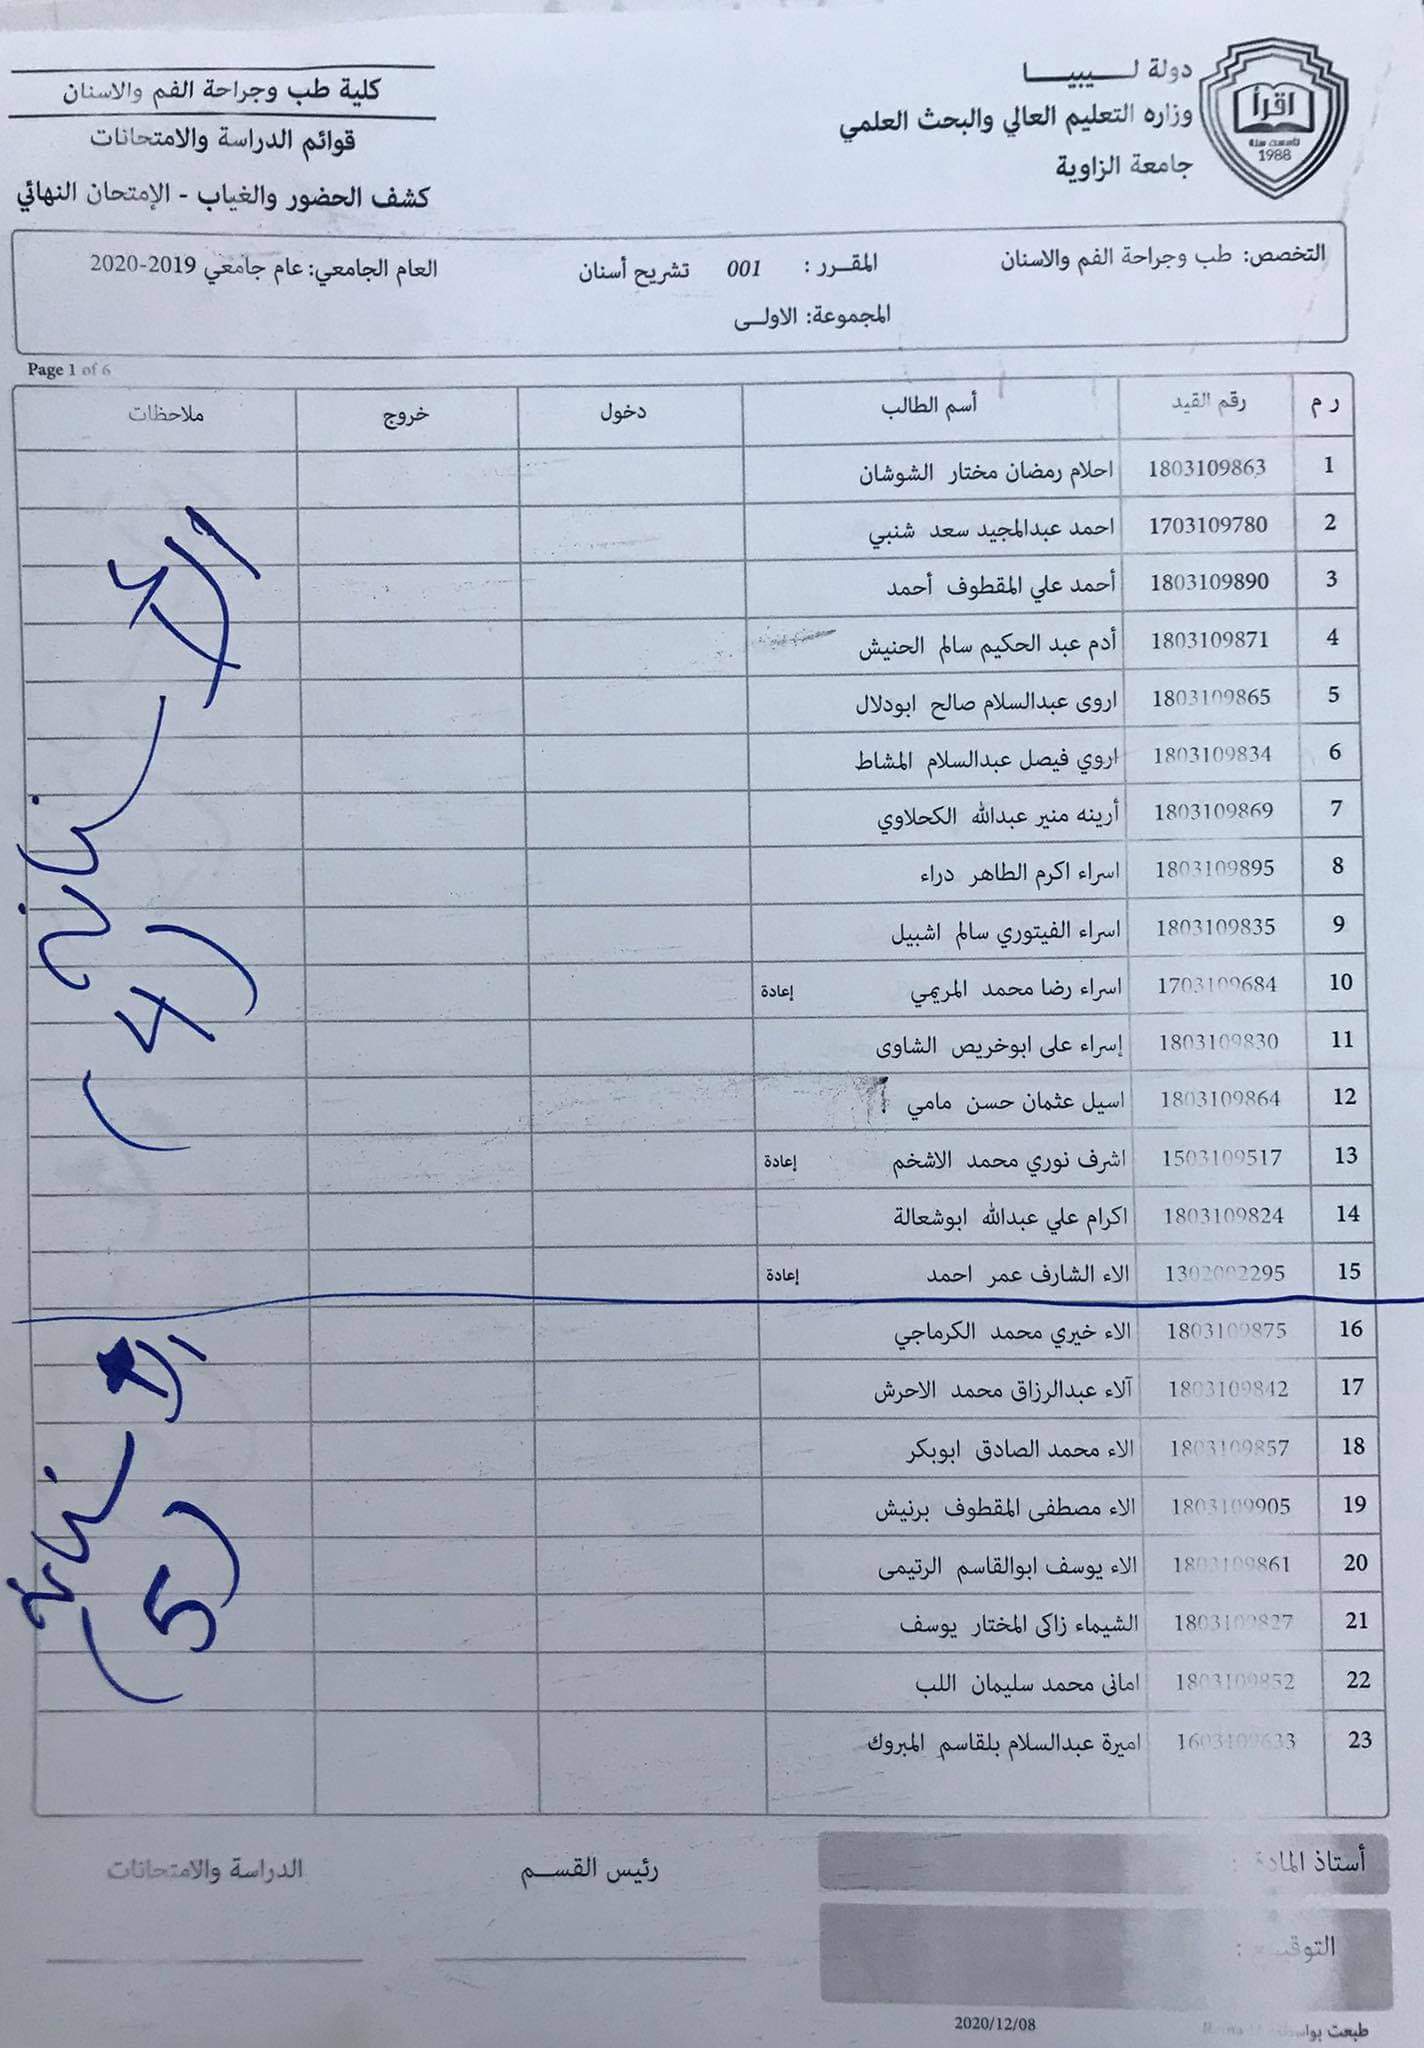 دولة لـــيبيـــــا
وزاره التعليم العالي والبحث العلمي
جامعة الزاوية
اقرأ
تأسست سنة
1988
كلية طب وجراحة الفم والاسنان
قوائم الدراسة والامتحانات
كشف الحضور والغياب - الإمتحان النهائي
التخصص: طب وجراحة الفم والاسنان المقـرر : 001 تشريح أسنان العام الجامعي: عام جامعي 2019-2020
المجموعة: الاولــى
Page 1 of 6
ر م رقم القيد أسم الطالب دخول خروج ملاحظات
1 1803109863 احلام رمضان مختار الشوشان
2 1703109780 احمد عبدالمجيد سعد شنبي
3 1803109890 أحمد علي المقطوف أحمد
4 1803109871 أدم عبد الحكيم سالم الحنيش
5 1803109865 اروى عبدالسلام صالح ابودلال
6 1803109834 اروي فيصل عبدالسلام المشاط
7 1803109869 أرينه منير عبدالله الكحلاوي
8 1803109895 اسراء اكرم الطاهر دراء
9 1803109835 اسراء الفيتوري سالم اشبيل
10 1703109684 اسراء رضا محمد المريمي إعادة
11 1803109830 إسراء على ابوخريص الشاوى
12 1803109864 اسيل عثمان حسن مامي
13 1503109517 اشرف نوري محمد الاشخم إعادة
14 1803109824 اكرام علي عبدالله ابوشعالة
15 1302002295 الاء الشارف عمر احمد إعادة
(4)
16 1803109875 الاء خيري محمد الكرماجي
17 1803109842 آلاء عبدالرزاق محمد الاحرش
18 1803109857 الاء محمد الصادق ابوبكر
19 1803109905 الاء مصطفى المقطوف برنيش
20 1803109861 الاء يوسف ابوالقاسم الرتيمى
21 1803109827 الشيماء زاكى المختار يوسف
22 1803109852 امانى محمد سليمان اللب
23 1603109633 اميرة عبدالسلام بلقاسم المبروك
(5)
أستاذ المادة : رئيس القســم الدراسة والامتحانات
التوقيع :
طبعت بواسطة 2020/12/08